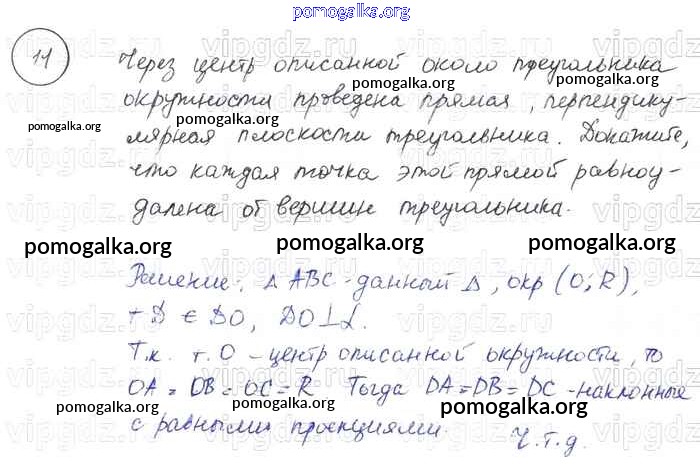 pomogalka.org
11
Через центр описанной около треугольника
pomogalka.org pomogalka.org
окружности проведена прямая, перпендику-
pomogalka.org
лярная плоскости треугольника. Докажите,
что каждая точка этой прямой равноу-
далена от вершин треугольника.
pomogalka.org pomogalka.org pomogalka.org
Решение: Δ ABC - данный Δ, окр (O; R),
т D ∈ DO, DO⊥α.
Т.к. т. O - центр описанной окружности, то
OA = OB = OC = R Тогда DA=DB=DC - наклонные
pomogalka.org pomogalka.org pomogalka.org
с равными проекциями.
Ч.т.д.